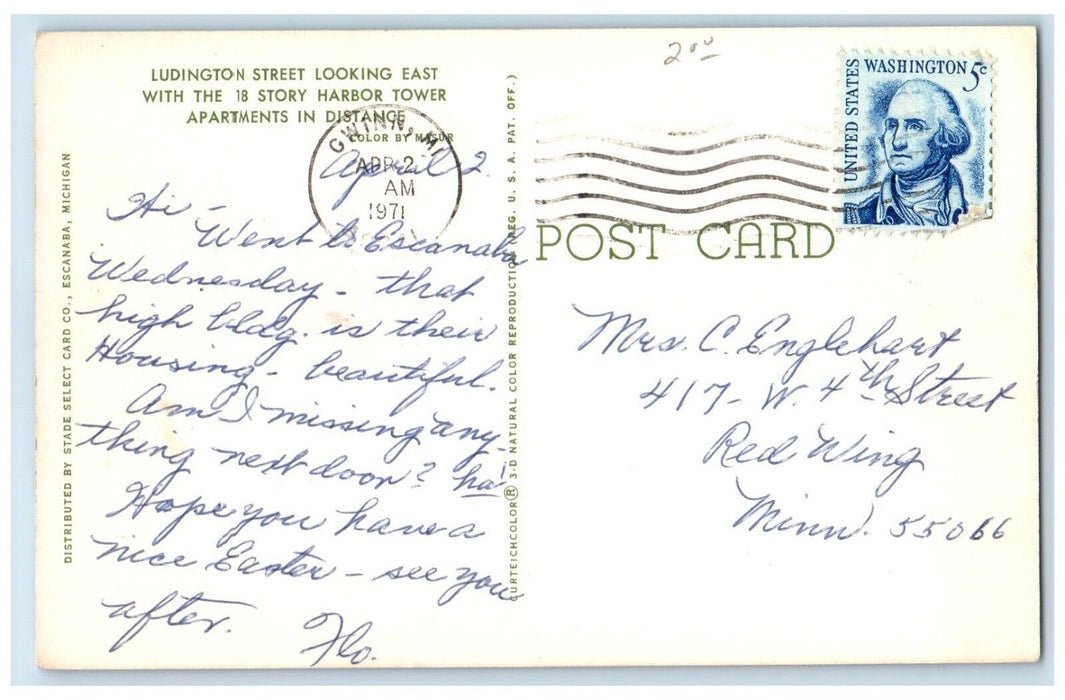 LUDINGTON STREET LOOKING EAST
WITH THE 18 STORY HARBOR TOWER
APARTMENTS IN DISTANCE
COLOR BY MASUR
GWINN, MI
APR 2
AM
1971
April 2
Hi -
Went to Escanaba
Wednesday - that
high bldg. is their
Housing - beautiful.
Am I missing any-
thing next door? ha!
Hope you have a
nice Easter - see you
after.
Flo.
DISTRIBUTED BY STADE SELECT CARD CO., ESCANABA, MICHIGAN
CURTEICHCOLOR® 3-D NATURAL COLOR REPRODUCTION (REG. U. S. A. PAT. OFF.)
2.00
UNITED STATES
WASHINGTON 5c
POST CARD
Mrs. C. Englehart
417 - W. 4th Street
Red Wing
Minn. 55066